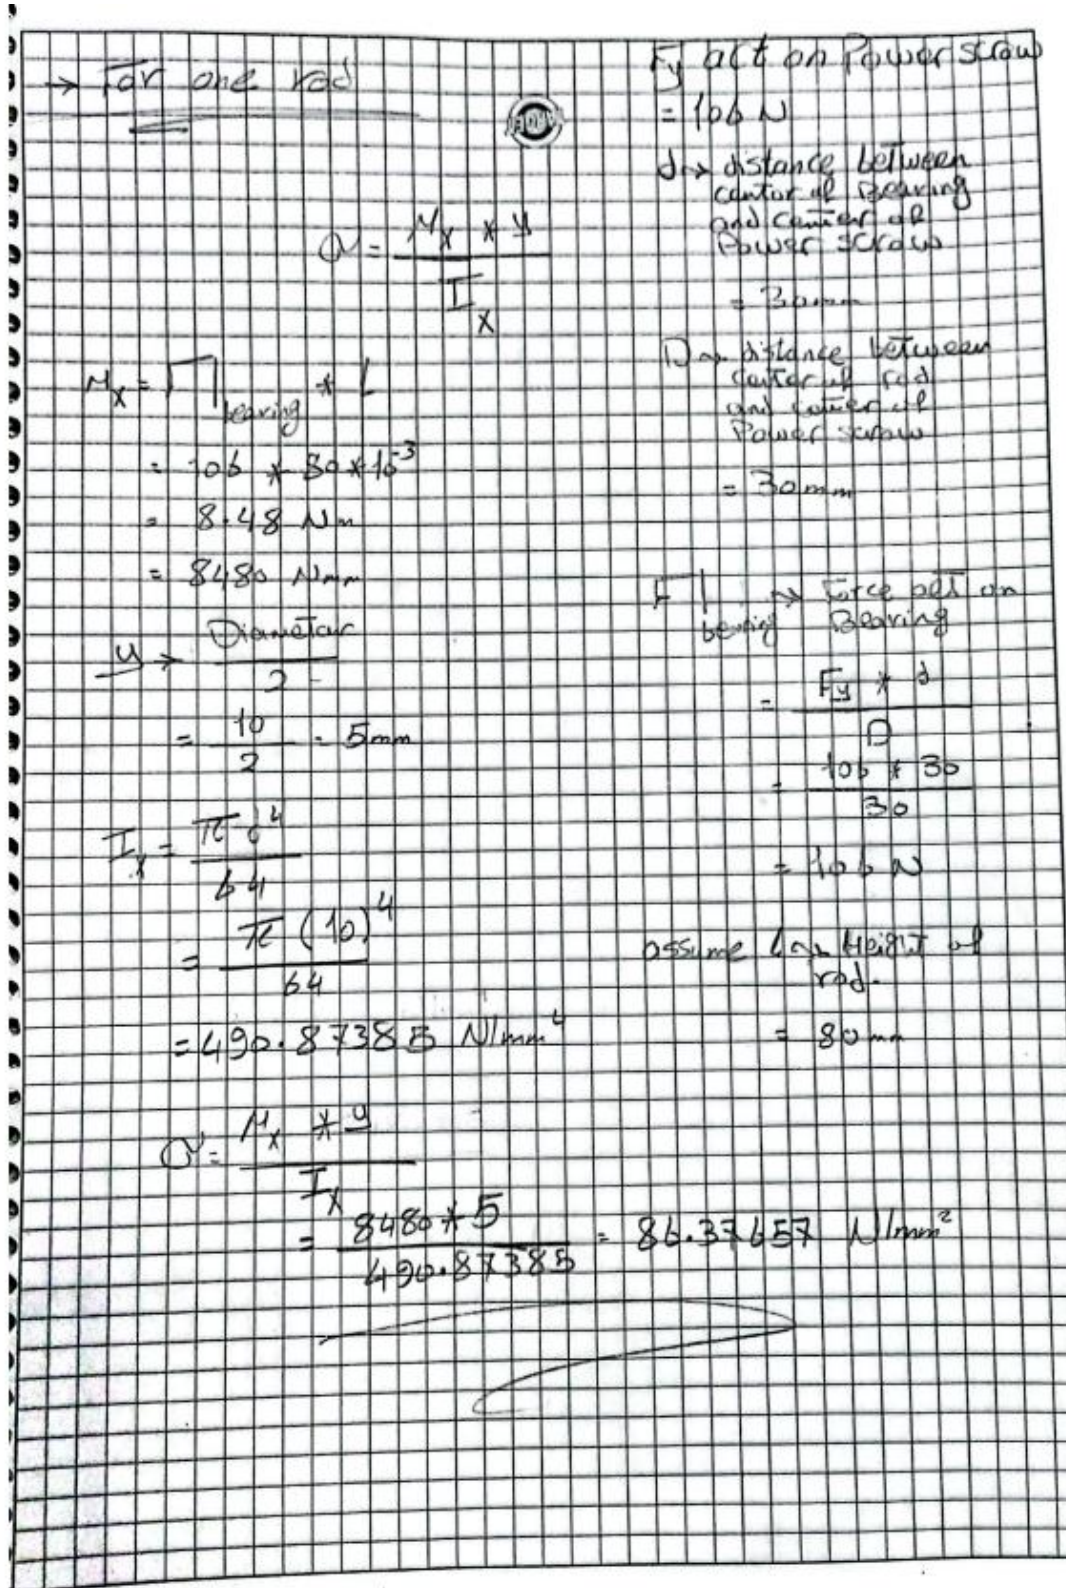 → For one rod
σ = Mx * y / Ix
Mx = F|bearing * L
= 106 * 80 * 10^-3
= 8.48 Nm
= 8480 Nmm
y → Diameter / 2
= 10 / 2 = 5mm
Ix = π d^4 / 64
= π (10)^4 / 64
= 490.87385 N/mm^4
σ = Mx * y / Ix
= 8480 * 5 / 490.87385 = 86.37657 N/mm²
Fy act on Power screw
= 106 N
d → distance between
center of Bearing
and center of
Power screw
= 30mm
D → distance between
center of rod
and center of
Power screw
= 30mm
F|bearing → Force act on
Bearing
= Fy * d / D
= 106 * 30 / 30
= 106 N
assume L → Height of
rod.
= 80mm